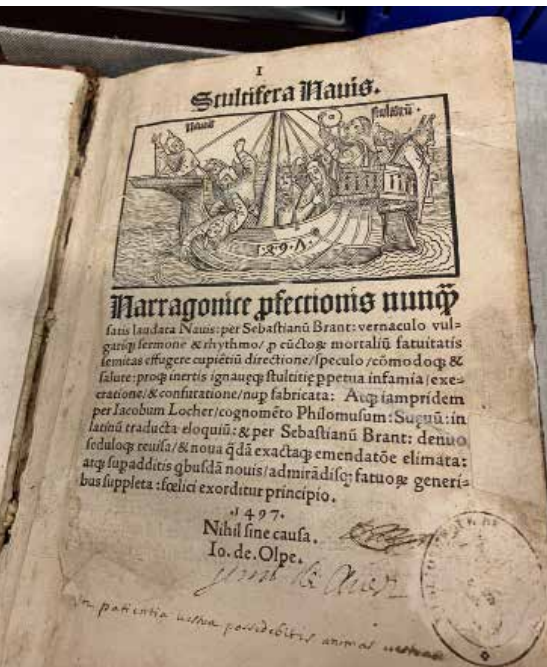 1
Stultifera Nauis.
Nauis stultorū.
1497.
Narragonice ꝓfectionis nunꝙ̄
satis laudata Nauis: per Sebastianū Brant: vernaculo vul⸗
gariꝗ sermone & rhythmo/ ꝓ cūctoꝝ mortaliū fatuitatis
semitas effugere cupiētiū directione/ speculo/ cōmodoꝗ &
salute: proꝗ inertis ignaueꝗ stultitię ꝑpetua infamia/ exe⸗
cratione/ & confutatione/ nuꝑ fabricata: Atꝗ iampridem
per Iacobum Locher/ cognomēto Philomusum: Sueuū: in
latinū traducta eloquiū: & per Sebastianū Brant: denuo
seduloꝗ reuisa/ & noua q̄dā exactaꝗ emendatōe elimata:
atꝗ supadditis qbusdā nouis/ admirādisꝗ fatuoꝝ generi⸗
bus suppleta: fœlici exorditur principio.
.1497.
Nihil sine causa.
Io. de. Olpe.
In patientia uestra possidebitis animas uestras